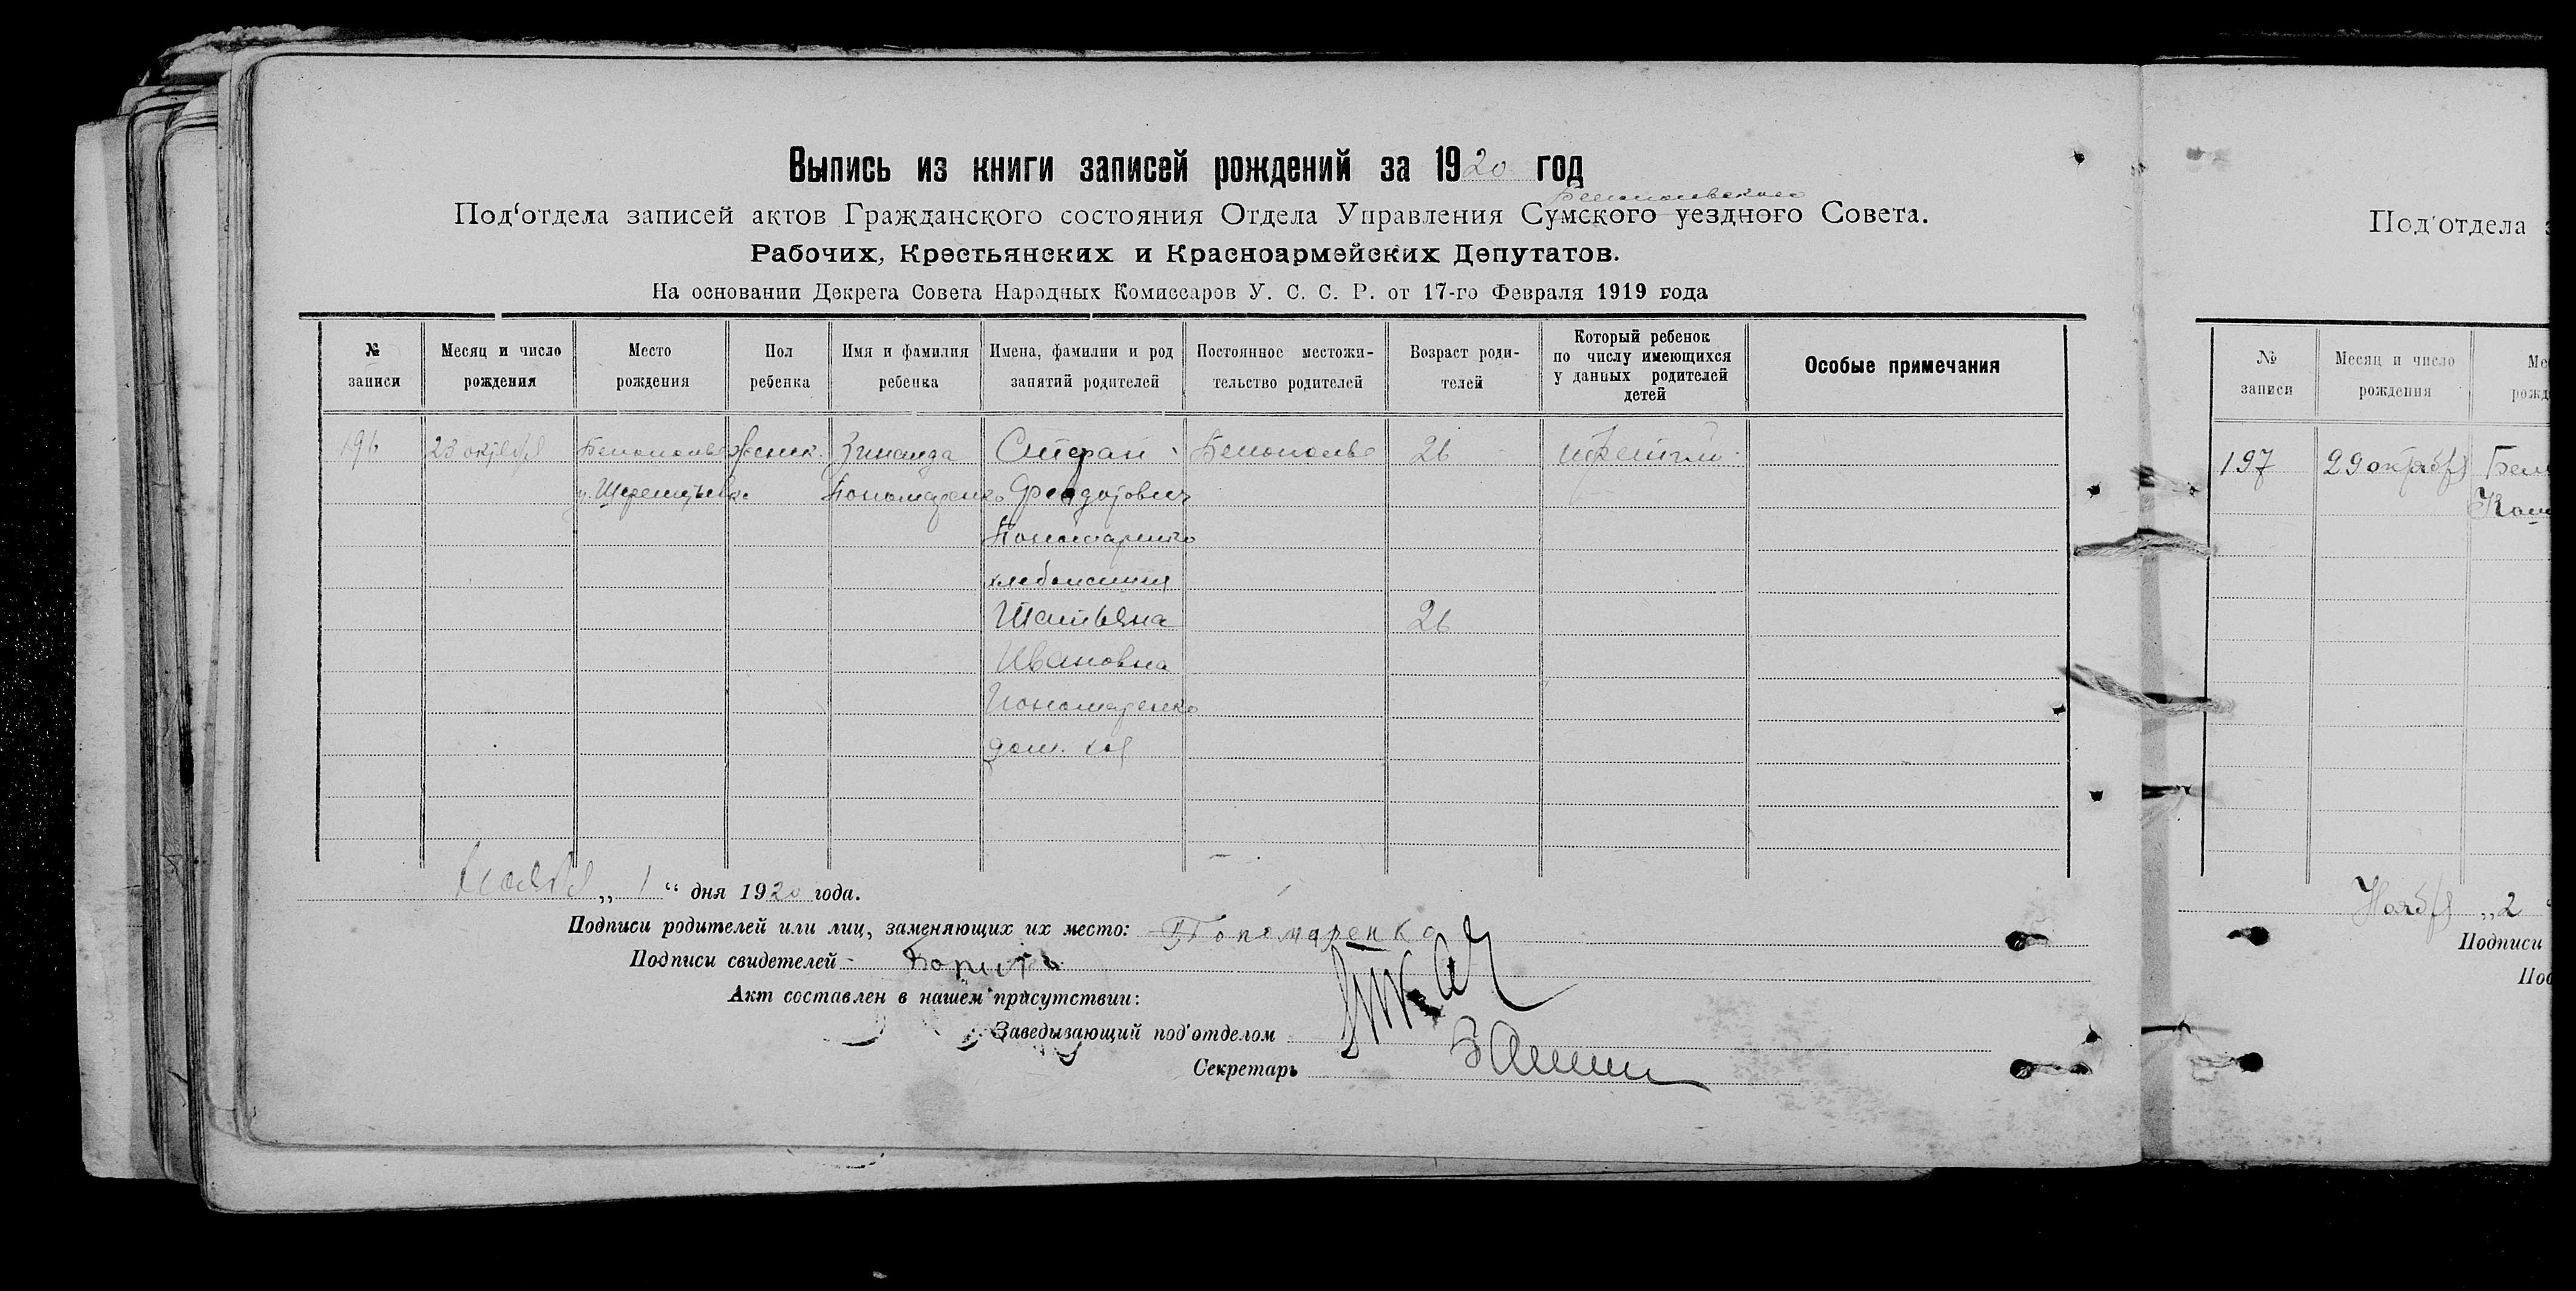 Выпись из книги записей рождений за 1920 год
Под'отдела записей актов Гражданского состояния Отдела Управления Сумского уездного Совета.
Рабочих, Крестьянских и Красноармейских Депутатов.
На основании Декрета Совета Народных Комиссаров У. С. С. Р. от 17-го Февраля 1919 года
№ записи
Месяц и число рождения
Место рождения
Пол ребенка
Имя и фамилия ребенка
Имена, фамилии и род занятий родителей
Постоянное местожительство родителей
Возраст родителей
Который ребенок по числу имеющихся у данных родителей детей
Особые примечания
196
23 октября
Белополье
Женск.
Зинаида
Пономаренко
Стефан
Феодотович
Пономаренко
Татьяна
Ивановна
Пономаренко
дом. хоз
Белополье
26
26
Ноября „ 1 “ дня 1920 года.
Подписи родителей или лиц, заменяющих их место: Пономаренко
Подписи свидетелей
Акт составлен в нашем присутствии:
Заведывающий под'отделом
Секретарь
Под'отдела
№ записи
Месяц и число рождения
197
29 октября
Ноября „ 2
Подписи